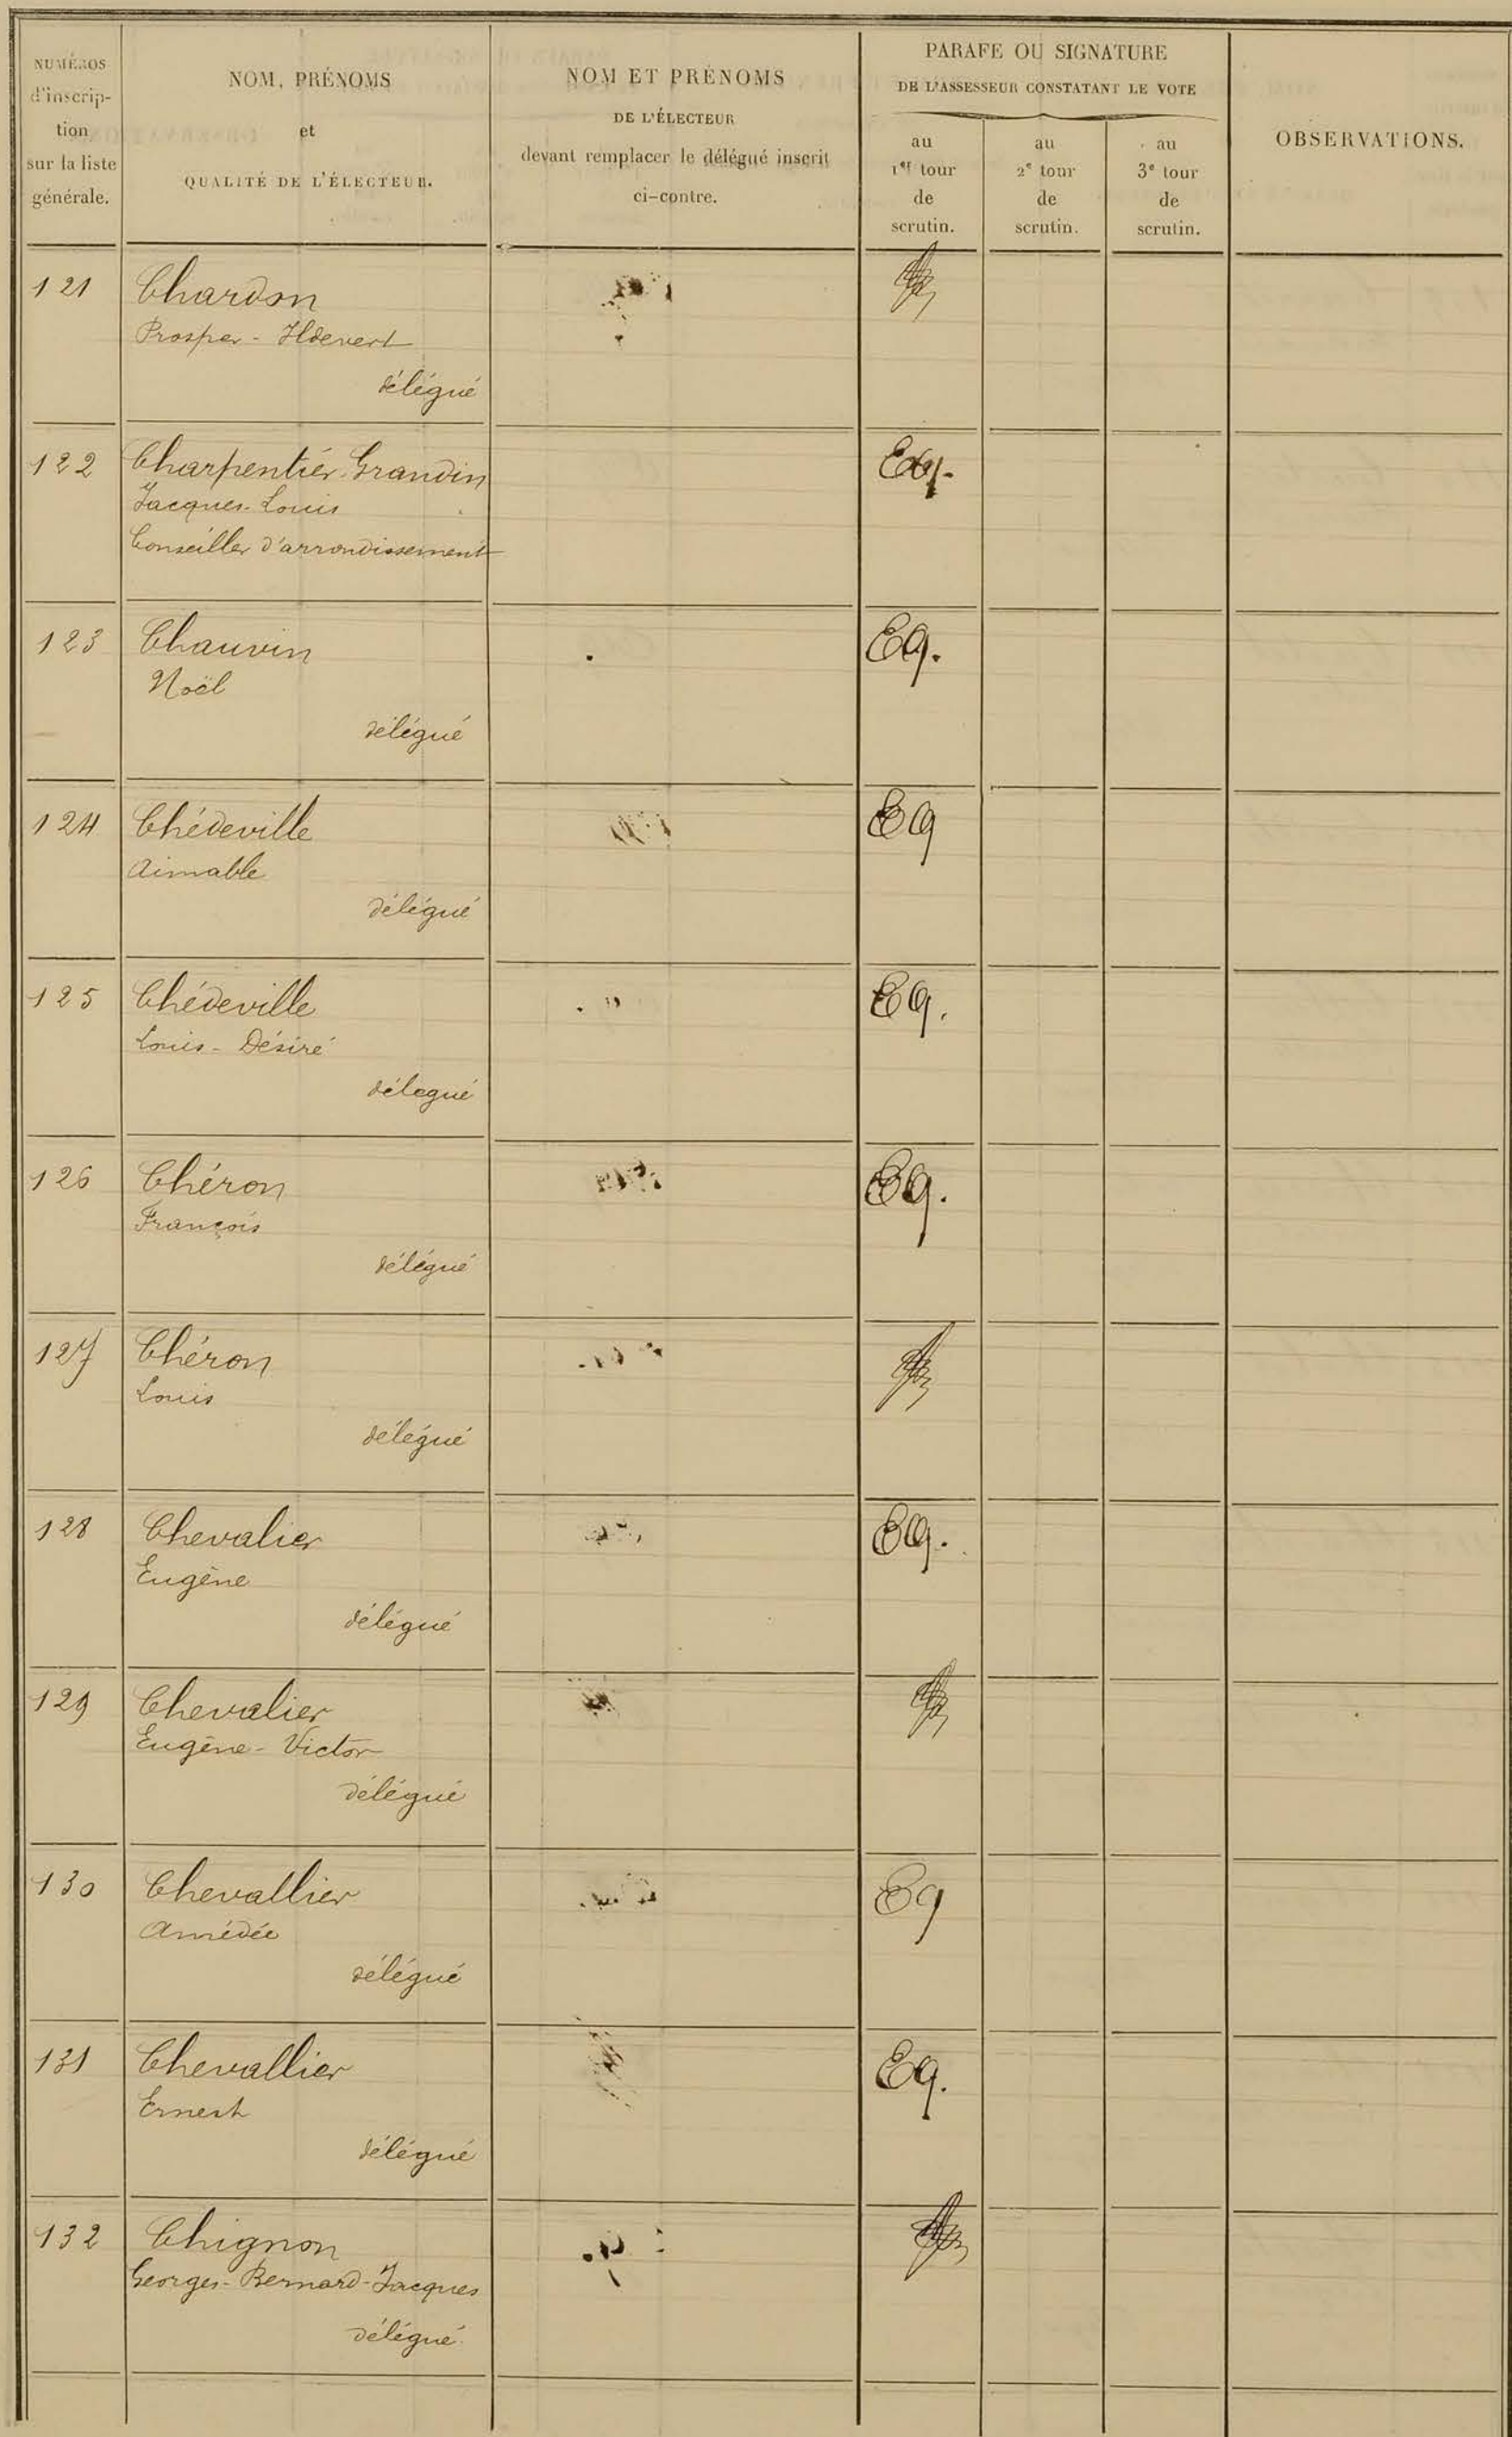 NUMÉROS
d'inscrip-
tion
sur la liste
générale.
NOM, PRÉNOMS
et
QUALITÉ DE L'ÉLECTEUR.
NOM ET PRÉNOMS
DE L'ÉLECTEUR
devant remplacer le délégué inscrit
ci-contre.
PARAFE OU SIGNATURE
DE L'ASSESSEUR CONSTATANT LE VOTE
au
1er tour
de
scrutin.
au
2e tour
de
scrutin.
au
3e tour
de
scrutin.
OBSERVATIONS.
121 Chardon
Prosper - Ildevert
délégué
122 Charpentier-Grandin
Jacques-Louis
Conseiller d'arrondissement
123 Chauvin
Noël
délégué
124 Chédeville
Aimable
délégué
125 Chédeville
Louis - Désiré
délégué
126 Chéron
François
délégué
127 Chéron
Louis
délégué
128 Chevalier
Eugène
délégué
129 Chevalier
Eugène - Victor
délégué
130 Chevallier
Amédée
délégué
131 Chevallier
Ernest
délégué
132 Chignon
Georges-Bernard-Jacques
délégué